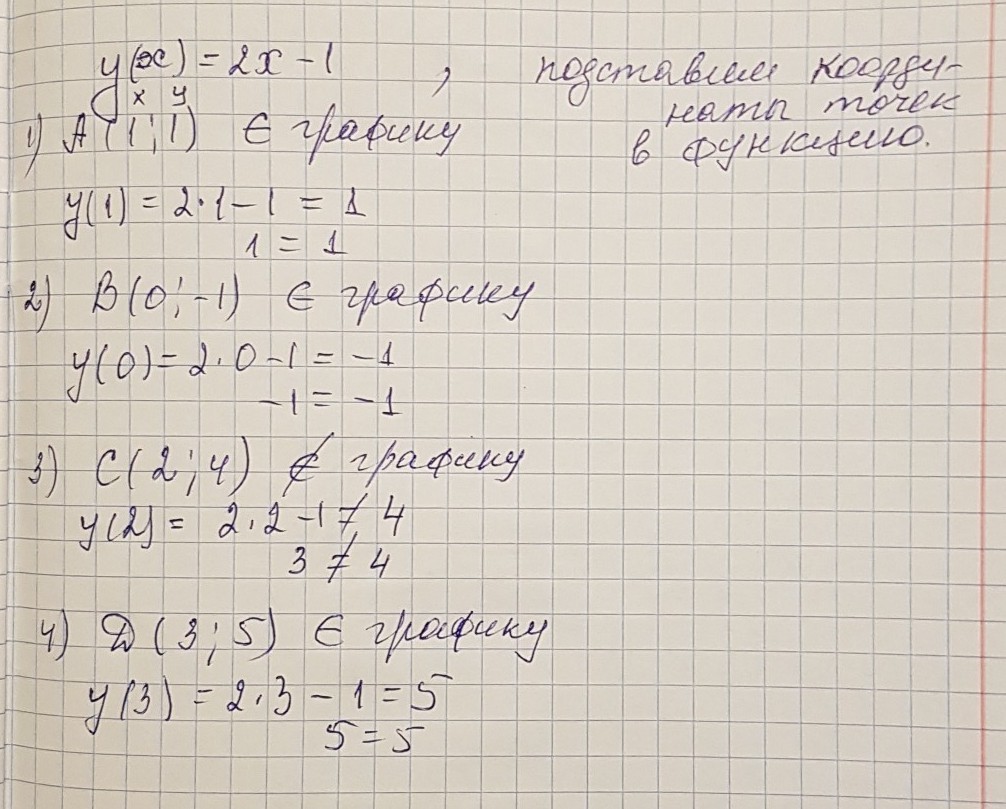 y(x) = 2x - 1 , подставим коорди-
x y наты точек
1) A(1; 1) ∈ графику в функцию.
y(1) = 2·1 - 1 = 1
1 = 1
2) B(0; -1) ∈ графику
y(0) = 2·0 - 1 = -1
-1 = -1
3) C(2; 4) ∉ графику
y(2) = 2·2 - 1 ≠ 4
3 ≠ 4
4) D(3; 5) ∈ графику
y(3) = 2·3 - 1 = 5
5 = 5